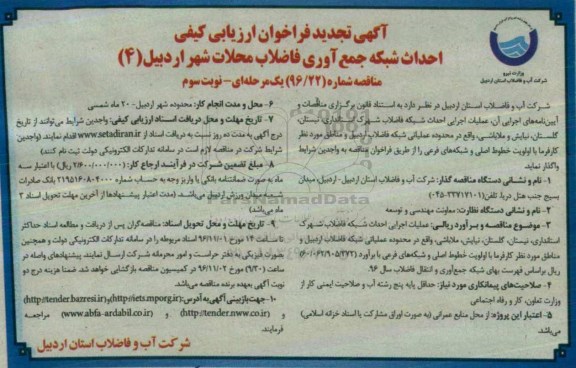 آگهی تجدید فراخوان ارزیابی کیفی
احداث شبکه جمع آوری فاضلاب محلات شهر اردبیل (۴)
مناقصه شماره (۹۶/۲۲) یک مرحله‌ای - نوبت سوم
وزارت نیرو
شرکت آب و فاضلاب استان اردبیل
شرکت آب و فاضلاب استان اردبیل در نظر دارد به استناد قانون برگزاری مناقصات و
آیین‌نامه‌های اجرایی آن، عملیات اجرایی احداث شبکه فاضلاب شهرک استانداری، نیستان،
گلستان، نیایش و ملاباشی، واقع در محدوده عملیاتی شبکه فاضلاب اردبیل و مناطق مورد نظر
کارفرما با اولویت خطوط اصلی و شبکه‌های فرعی را از طریق فراخوان مناقصه به واجدین شرایط
واگذار نماید.
۱- نام و نشانی دستگاه مناقصه گذار: شرکت آب و فاضلاب استان اردبیل - اردبیل، میدان
بسیج جنب هتل دریا، تلفن (۳۳۷۱۷۱۰۱-۰۴۵)
۲- نام و نشانی دستگاه نظارت: معاونت مهندسی و توسعه
۳- موضوع مناقصه و برآورد ریالی: عملیات اجرایی احداث شبکه فاضلاب شهرک
استانداری، نیستان، گلستان، نیایش، ملاباشی، واقع در محدوده عملیاتی شبکه فاضلاب اردبیل و
مناطق مورد نظر کارفرما با اولویت خطوط اصلی و شبکه‌های فرعی با برآورد
ریال براساس فهرست بهای شبکه جمع‌آوری و انتقال فاضلاب سال ۹۶.
۴- صلاحیت‌های پیمانکاری مورد نیاز: حداقل پایه پنج رشته آب و صلاحیت ایمنی کار از
وزارت تعاون، کار و رفاه اجتماعی
۵- اعتبار این پروژه: از محل منابع عمرانی (به صورت اوراق مشارکت یا اسناد خزانه اسلامی)
می‌باشد.
۶- محل و مدت انجام کار: محدوده شهر اردبیل - ۲۰ ماه شمسی
۷- تاریخ مهلت و محل دریافت اسناد ارزیابی کیفی: واجدین شرایط می‌توانند از تاریخ
درج آگهی به مدت ده روز نسبت به دریافت اسناد از www.setadiran.ir اقدام نمایند. (واجدین
شرایط شرکت در مناقصه لازم است در سامانه تدارکات الکترونیکی دولت ثبت نام کنند)
۸- مبلغ تضمین شرکت در فرآیند ارجاع کار: ریال) با اعتبار سه
ماه به صورت ضمانتنامه بانکی یا واریز وجه به حساب شماره بانک صادرات
شعبه میدان ورزش اردبیل می‌باشد. (مدت اعتبار پیشنهادها از آخرین مهلت تحویل اسناد ۳
ماه می‌باشد)
۹- تاریخ مهلت و محل تحویل اسناد: مناقصه‌گران پس از دریافت و مطالعه اسناد حداکثر
تا ساعت ۱۴ مورخ ۹۶/۱۱/۰۱ اسناد مربوطه را در سامانه تدارکات الکترونیکی دولت و همچنین
بصورت فیزیکی به دفتر حراست و امور محرمانه شرکت ارسال نمایند. پیشنهادهای واصله در
ساعت (۹/۳۰) مورخ ۹۶/۱۱/۰۲ در کمیسیون مناقصه بازگشایی خواهد شد. ضمنا هزینه درج دو
نوبت آگهی بعهده برنده مناقصه می‌باشد.
۱۰- جهت بازبینی آگهی به آدرس: (http://iets.mporg.ir) و (http://tender.bazresi.ir)
و (http://tender.nww.co.ir) و (www.abfa-ardabil.co.ir) مراجعه
فرمایند.
شرکت آب و فاضلاب استان اردبیل
ParsNamadData